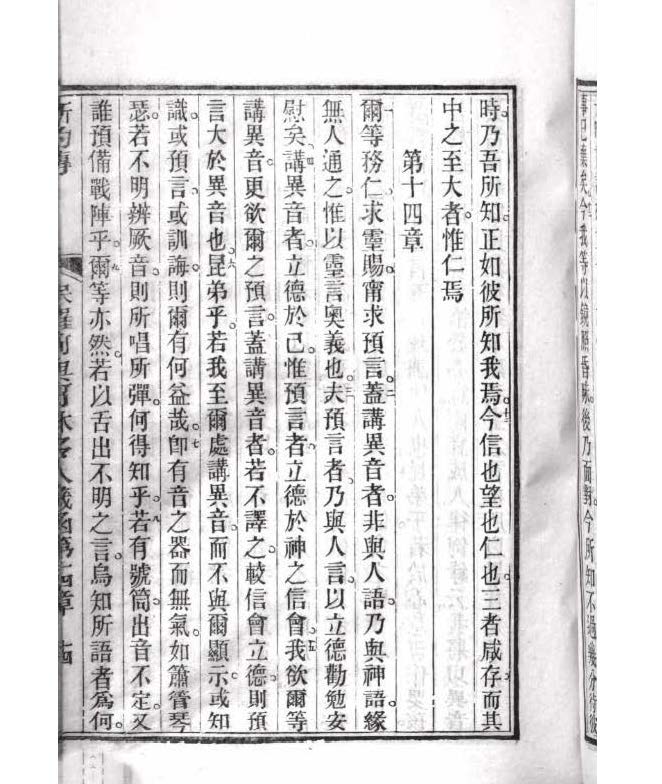 事已彙矣今我等以鏡照昏昧後乃面對今所知不過幾分待彼
時乃吾所知正如彼所知我焉。十三今信也望也仁也。三者咸存而其
中之至大者惟仁焉
第十四章
一爾等務仁求靈賜甯求預言。二蓋講異音者。非與人語乃與神語緣
無人通之。惟以靈言奧義也。三夫預言者。乃與人言。以立德勸勉安
慰矣。四講異音者。立德於己惟預言者。立德於神之信會。五我欲爾等
講異音。更欲爾之預言。蓋講異音者。若不譯之。較信會立德。則預
言大於異音也。六昆弟乎。若我至爾處講異音。而不與爾顯示或知
識。或預言。或訓誨。則爾有何益哉。七卽有音之器而無氣。如簫管琴
瑟。若不明辨厥音。則所唱所彈。何得知乎。八若有號筒出音不定。又
誰預備戰陣乎。九爾等亦然。若以舌出不明之言。烏知所語者爲何。
新約傳 人義函第十四章 十四